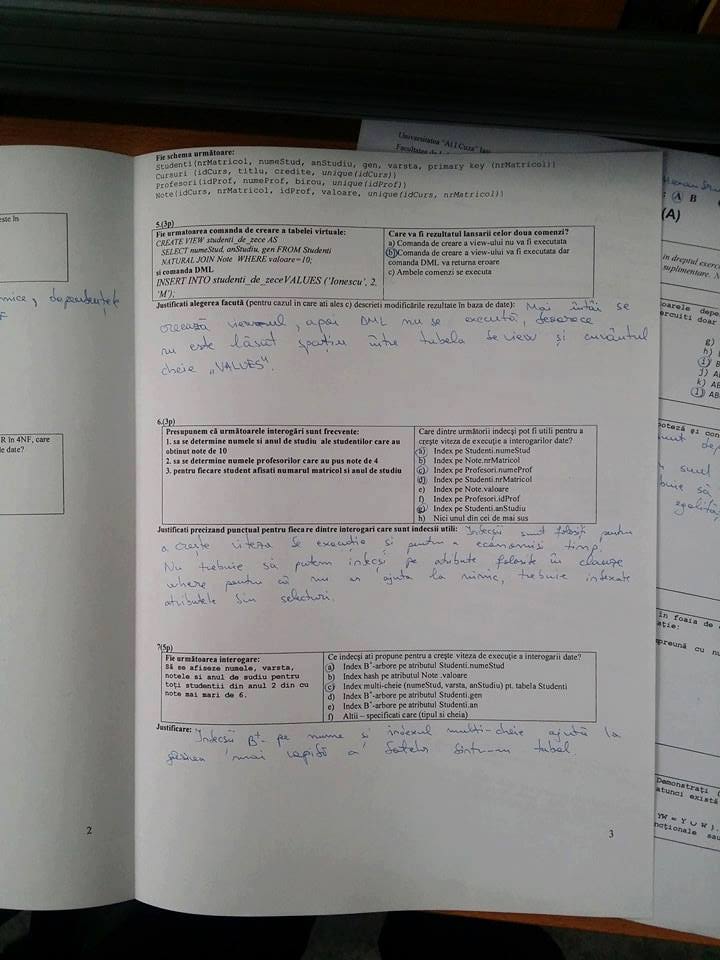 Universitatea "Al I Cuza" Iasi
Fie schema următoare:
Studenti(nrMatricol, numeStud, anStudiu, gen, varsta, primary key (nrMatricol))
Cursuri (idCurs, titlu, credite, unique(idCurs))
Profesori(idProf, numeProf, birou, unique(idProf))
Note(idCurs, nrMatricol, idProf, valoare, unique(idCurs, nrMatricol))
5.(3p)
Fie urmatoarea comanda de creare a tabelei virtuale:
CREATE VIEW studenti_de_zece AS
SELECT numeStud, anStudiu, gen FROM Studenti
NATURAL JOIN Note WHERE valoare=10;
si comanda DML
INSERT INTO studenti_de_zeceVALUES ('Ionescu', 2,
'M');
Care va fi rezultatul lansarii celor doua comenzi?
a) Comanda de creare a view-ului nu va fi executata
b) Comanda de creare a view-ului va fi executata dar
comanda DML va returna eroare
c) Ambele comenzi se executa
Justificati alegerea facută (pentru cazul in care ati ales c) descrieti modificările rezultate in baza de date): Mai întâi se
creează viewul, apoi DML nu se execută, deoarece
nu este lăsat spațiu între tabela de view și cuvântul
cheie „VALUES".
6.(3p)
Presupunem că următoarele interogări sunt frecvente:
1. sa se determine numele si anul de studiu ale studentilor care au
obtinut note de 10
2. sa se determine numele profesorilor care au pus note de 4
3. pentru fiecare student afisati numarul matricol si anul de studiu
Care dintre următorii indecși pot fi utili pentru a
crește viteza de execuție a interogarilor date?
a) Index pe Studenti.numeStud
b) Index pe Note.nrMatricol
c) Index pe Profesori.numeProf
d) Index pe Studenti.nrMatricol
e) Index pe Note.valoare
f) Index pe Profesori.idProf
g) Index pe Studenti.anStudiu
h) Nici unul din cei de mai sus
Justificati precizand punctual pentru fiecare dintre interogari care sunt indecsii utili: Indecșii sunt folosiți pentru
a crește viteza de execuție si pentru a economisi timp.
Nu trebuie să putem indecși pe atribute folosite în clauze
where pentru că nu ar ajuta la nimic, trebuie indexate
atributele din selecturi.
7(5p)
Fie următoarea interogare:
Să se afiseze numele, varsta,
notele si anul de sudiu pentru
toți studentii din anul 2 din cu
note mai mari de 6.
Ce indecși ati propune pentru a crește viteza de execuție a interogarii date?
a) Index B+-arbore pe atributul Studenti.numeStud
b) Index hash pe atributul Note .valoare
c) Index multi-cheie (numeStud, varsta, anStudiu) pt. tabela Studenti
d) Index B+-arbore pe atributul Studenti.gen
e) Index B+-arbore pe atributul Studenti.an
f) Altii – specificati care (tipul si cheia)
Justificare: Indecșii B+- pe nume si indexul multi-cheie ajută la
găsirea 'mai rapidă a' datelor dintr-un tabel.
2
3